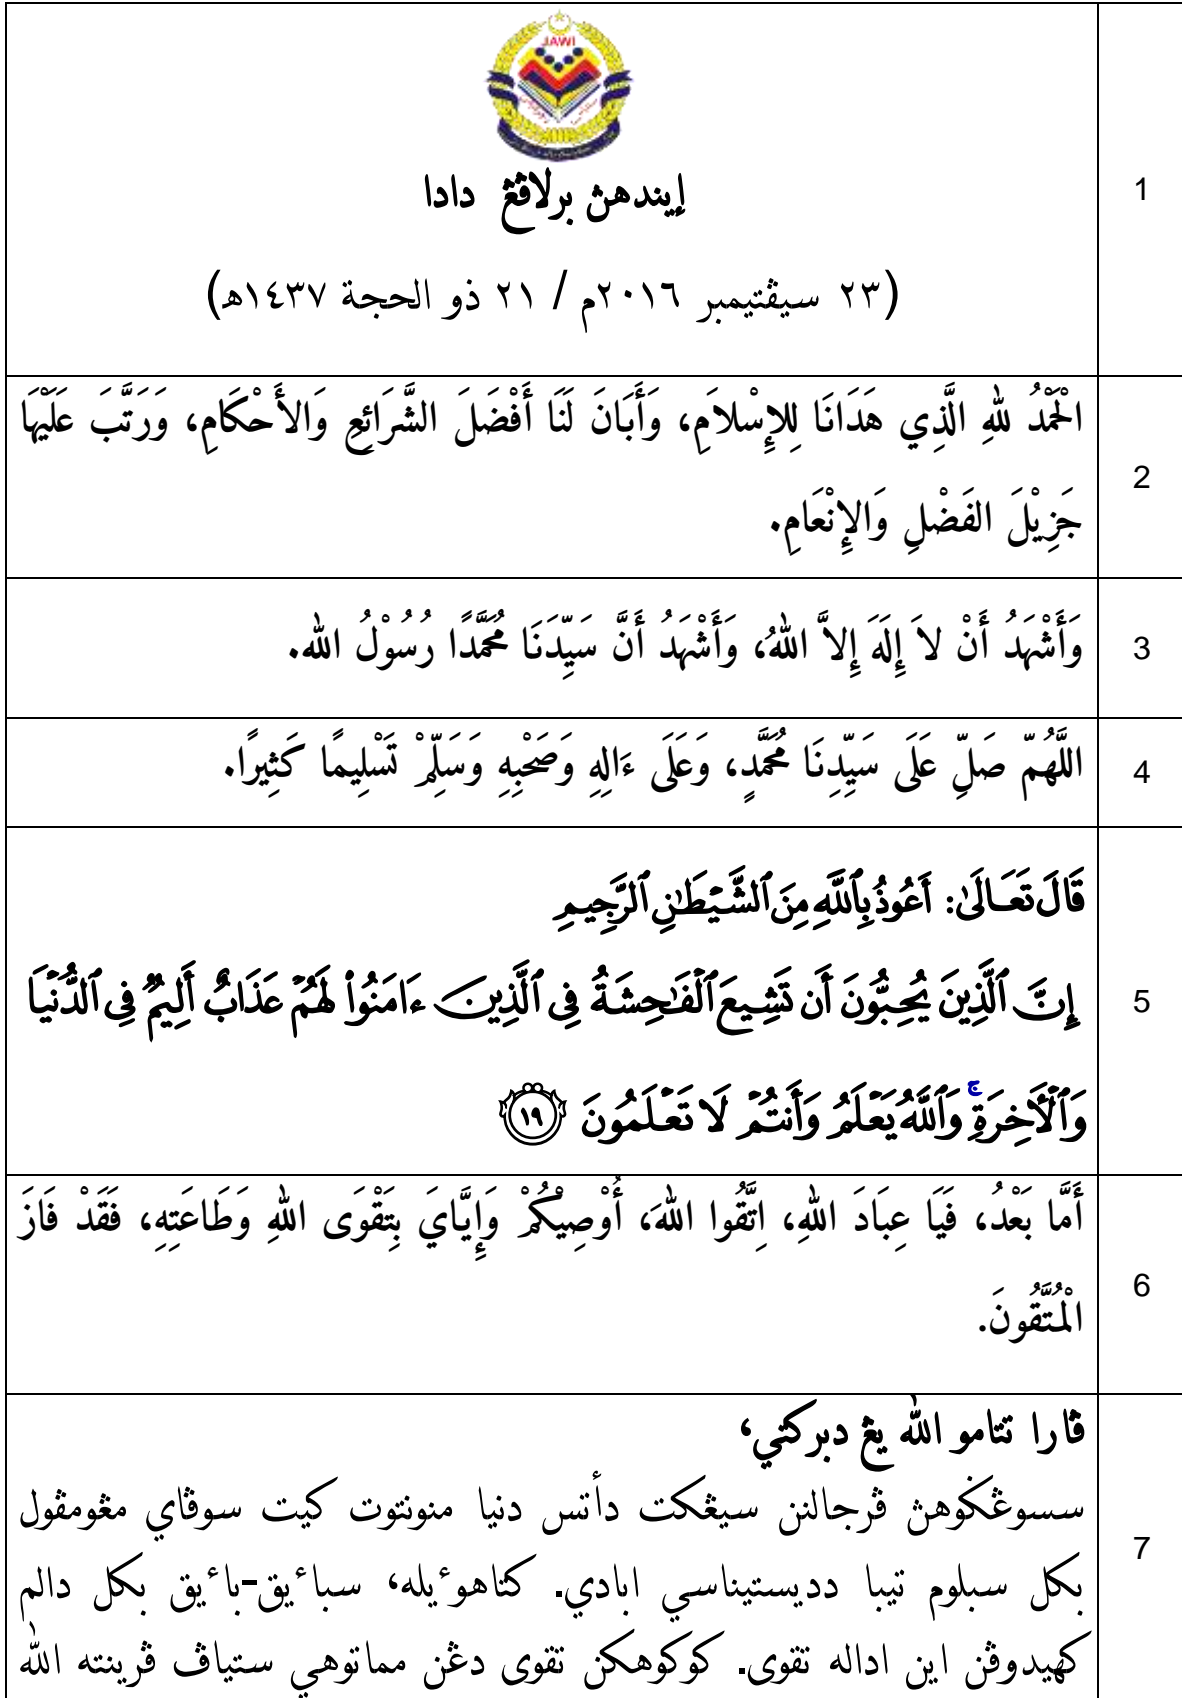 JAWI
إيندهڽ برلاڤڠ دادا
1
(٢٣ سيڤتيمبر ٢٠١٦م / ٢١ ذو الحجة ١٤٣٧هـ)
الْحَمْدُ للهِ الَّذِي هَدَانَا لِلإِسْلاَمِ، وَأَبَانَ لَنَا أَفْضَلَ الشَّرَائِعِ وَالأَحْكَامِ، وَرَتَّبَ عَلَيْهَا
2
جَزِيْلَ الفَضْلِ وَالإِنْعَامِ.
وَأَشْهَدُ أَنْ لاَ إِلَهَ إِلاَّ اللهُ، وَأَشْهَدُ أَنَّ سَيِّدَنَا مُحَمَّدًا رُسُوْلُ الله.
3
اللَّهُمّ صَلِّ عَلَى سَيِّدِنَا مُحَمَّدٍ، وَعَلَى ءَالِهِ وَصَحْبِهِ وَسَلِّمْ تَسْلِيمًا كَثِيرًا.
4
قَالَ تَعَالَىٰ: أَعُوذُ بِٱللَّهِ مِنَ ٱلشَّيْطَٰنِ ٱلرَّجِيمِ
إِنَّ ٱلَّذِينَ يُحِبُّونَ أَن تَشِيعَ ٱلْفَٰحِشَةُ فِى ٱلَّذِينَ ءَامَنُوا۟ لَهُمْ عَذَابٌ أَلِيمٌ فِى ٱلدُّنْيَا
5
وَٱلْأَخِرَةِ ۚ وَٱللَّهُ يَعْلَمُ وَأَنتُمْ لَا تَعْلَمُونَ ١٩
أَمَّا بَعْدُ، فَيَا عِبَادَ اللهِ، اِتَّقُوا اللهَ، أُوْصِيْكُمْ وَإِيَّايَ بِتَقْوَى اللهِ وَطَاعَتِهِ، فَقَدْ فَازَ
6
الْمُتَّقُونَ.
ڤارا تتامو الله يڠ دبركتي،
سسوڠݢوهڽ ڤرجالنن سيڠكت دأتس دنيا منونتوت كيت سوڤاي مڠومڤول
7
بكل سبلوم تيبا دديستيناسي ابادي. كتاهوءيله، سباءيق-باءيق بكل دالم
كهيدوڤن اين اداله تقوى. كوكوهكن تقوى دڠن مماتوهي ستياڤ ڤرينته الله